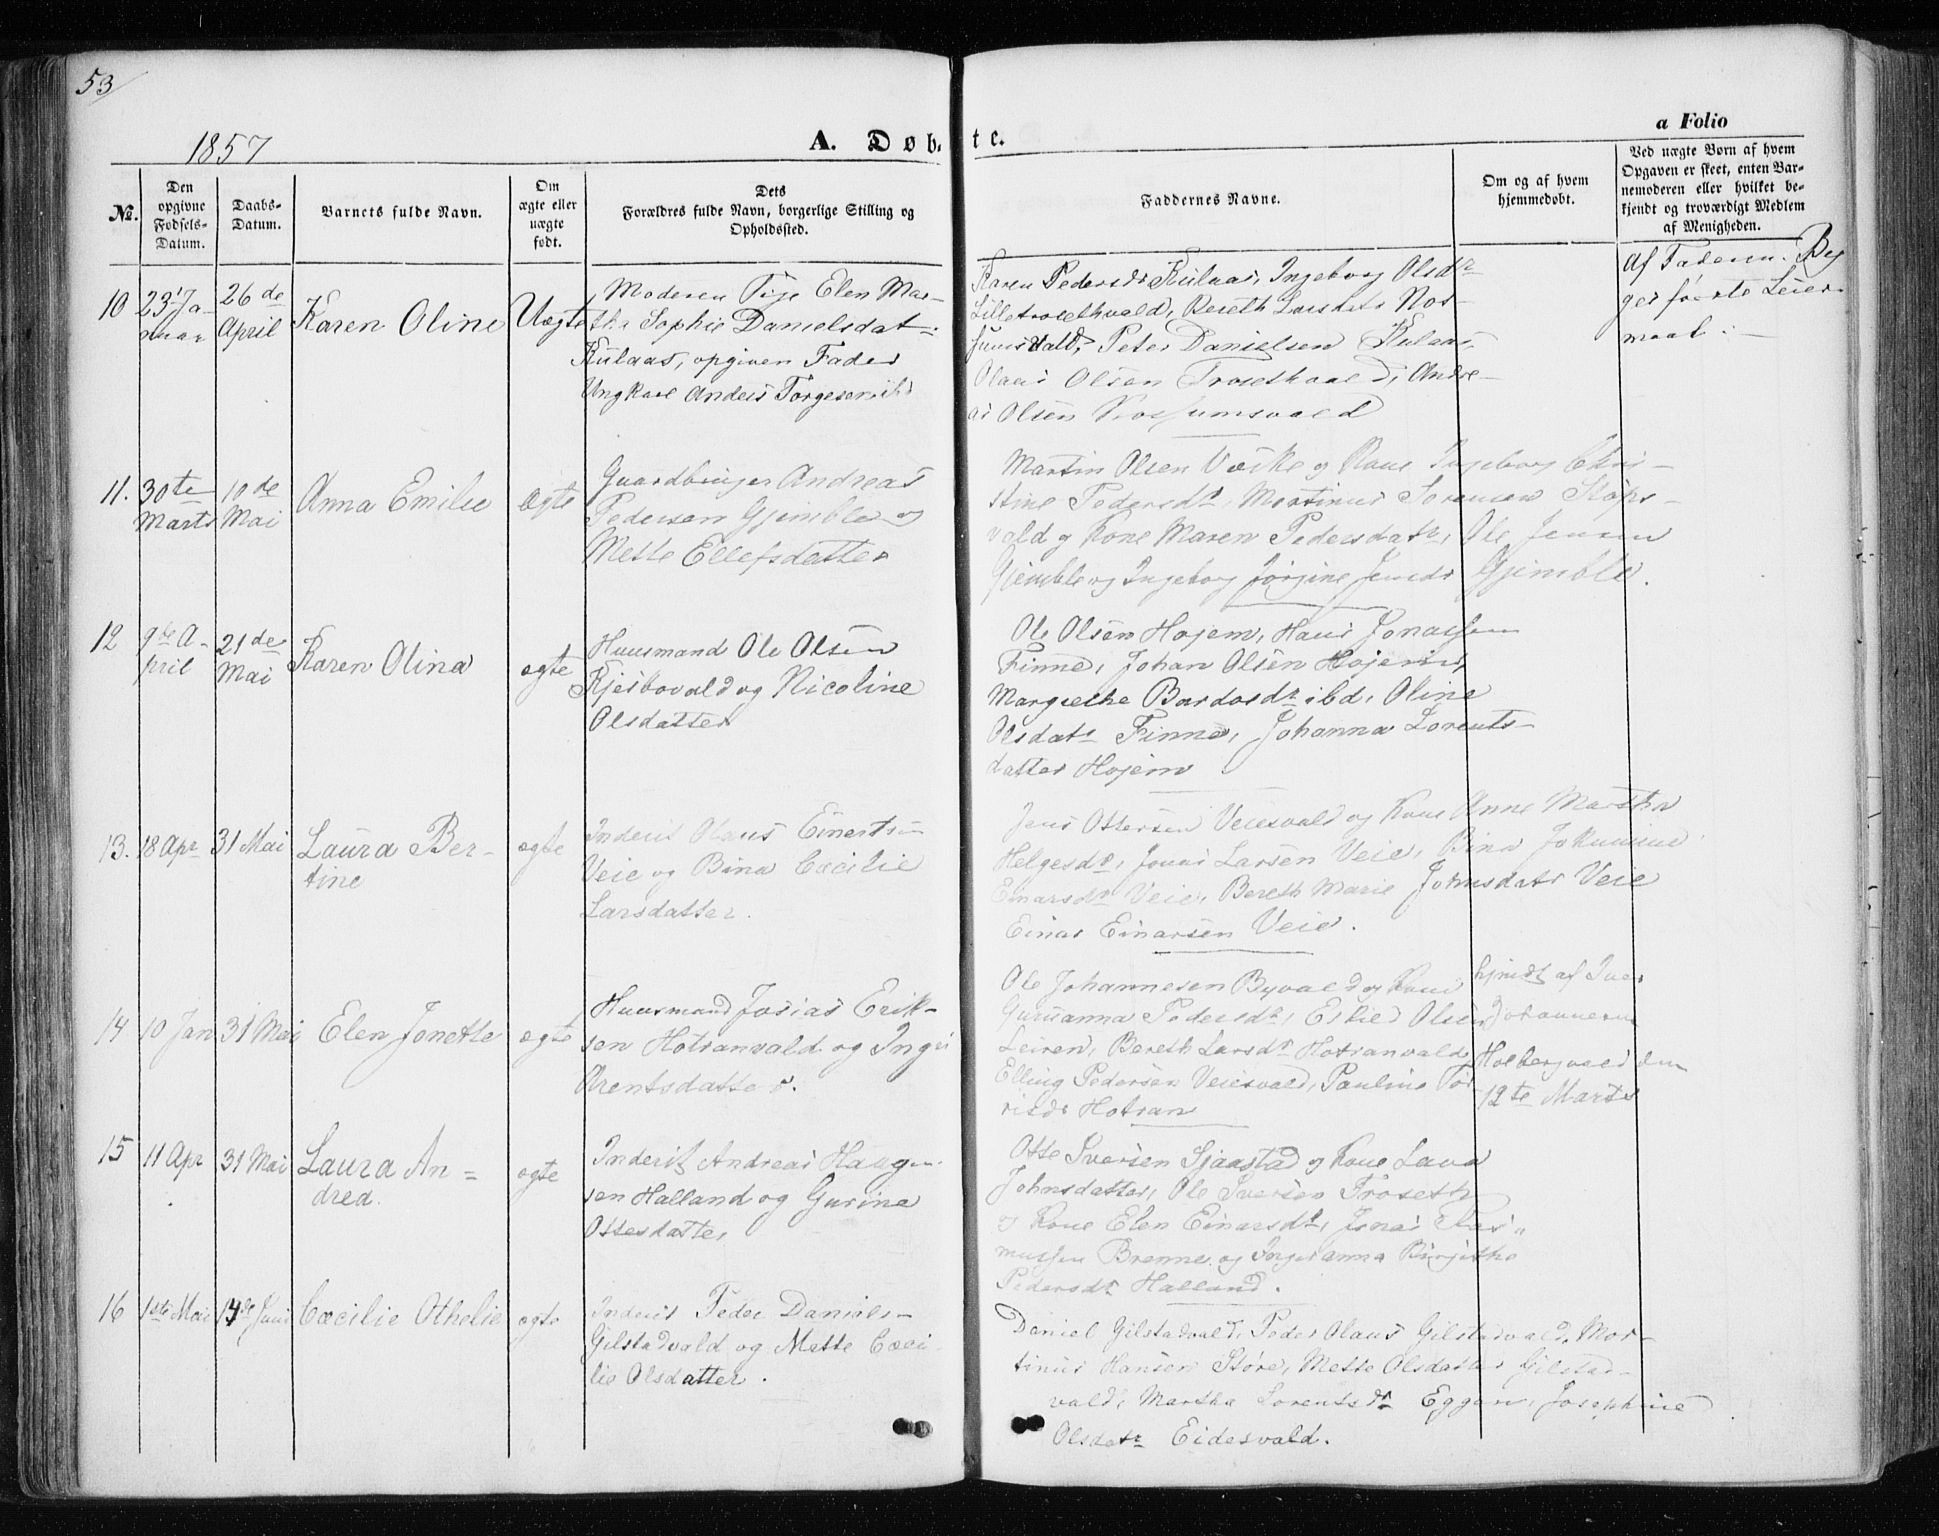 53
1857
A. Døb-
te.
a Folio
No.
Den
opgivne
Fødsels-
Datum.
Daabs-
Datum.
Barnets fulde Navn.
Om
ægte eller
uægte
født.
Dets
Forældres fulde Navn, borgerlige Stilling og
Opholdssted.
Faddernes Navne.
Om og af hvem
hjemmedøbt.
Ved uægte Børn af hvem
Opgaven er skeet, enten Bar-
nemoderen eller hvilket be-
kjendt og troværdigt Medlem
af Menigheden.
10
23' Ja-
nuar
26de
April
Karen Oline
Uægte
Moderen Pige Elen Mar-
tha Sophie Danielsdat-
Kulaas, opgiven Fader
Ungkarl Anders Torgersen ibd
Karen Pedersdr Kulaas, Ingeborg Olsdr
Lilletrosethvald, Bereth Larsdr Nos-
sumsvald, Peter Danielsen Kulaas,
Olaus Olsen Trosethvald, Andre-
as Olsen Nossumsvald
Af Faderen. Beg
ges første Leier
maal
11.
30te
Marts
10de
Mai
Anna Emilie
Ægte
Gaardbruger Andreas
Pedersen Gjemble og
Mette Ellefsdatter
Martin Olsen Væske og Kone Ingeborg Chri-
stine Pedersdr, Martinus Sorensen Stöps-
vald og Kone Maren Pedersdatr, Ole Jensen
Gjemble og Ingeborg Jørgine Jensdr Gjemble.
12
9de A-
pril
21de
Mai
Karen Olina
ægte
Huusmand Ole Olsen
Kjesbovald og Nicoline
Olsdatter
Ole Olsen Hojem, Hans Jonassen
Finne, Johan Olsen Hojem,
Margrethe Bardosdr ibd, Oline
Olsdatr Finne, Johanna Lorents-
datter Hojem
13.
18 Apr
31 Mai
Laura Ber-
tine
ægte
Inderst Olaus Einertsen
Veie og Bina Cæcilie
Larsdatter.
Jens Ottersen Veiesvald og Kone Anne Martha
Helgesdr, Jonas Larsen Veie, Bina Johannne
Einarsdr Veie, Bereth Marie Johnsdatr Veie
Einar Einarsen Veie.
14
10 Jan
31 Mai
Elen Jonette
ægte
Huusmand Josias Erik-
sen Hotranvald og Ingri
Arentsdatter.
Ole Johannesen Byvald og Kone
Guruanna Pedersdr, Eskild Olsen
Leiren, Bereth Larsdr Hotranvald
Elling Pedersen Veiesvald, Pauline Tor-
risdr Hotran
hjmdt af Iver
Johannesen
Holbergvald den
12te Marts
15
11 Apr
31 Mai
Laura An-
drea.
ægte
Inderst Andreas Haagen-
sen Halland og Gurine
Ottesdatter,
Otte Iversen Sjaastad og Kone Lava
Johnsdatter, Ole Iversen Troseth
og Kone Elen Einarsdr, Jonas Ras-
mussen Brenne og Ingeranna Birgitha
Pedersdr Halland.
16
1ste Mai
14de Juni
Cæcilie Othelie
ægte
Inderst Peder Daniels-
Gilstadvald og Mette Cæci-
lie Olsdatter.
Daniel Gilstadvald, Peder Olaus Gilstadvald, Mor-
tinus Hansen Störe, Mette Olsdatter Gilstad-
vald, Martha Lorentsdr Eggen, Josephine
Olsdatr Eidesvald.